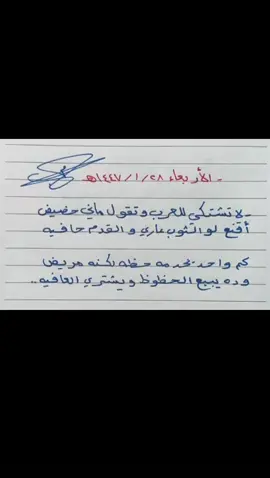 - الأربعاء ١٤٤٧/١/٢٨هـ
- لا تشتكي للعرب وتقول ماني حضيض
أقنع لو الثوب عاري و القدم حافيه
كم واحد بخدمه حظه لكنه مريض
وده يبيع الحظوظ ويشتري العافيه..